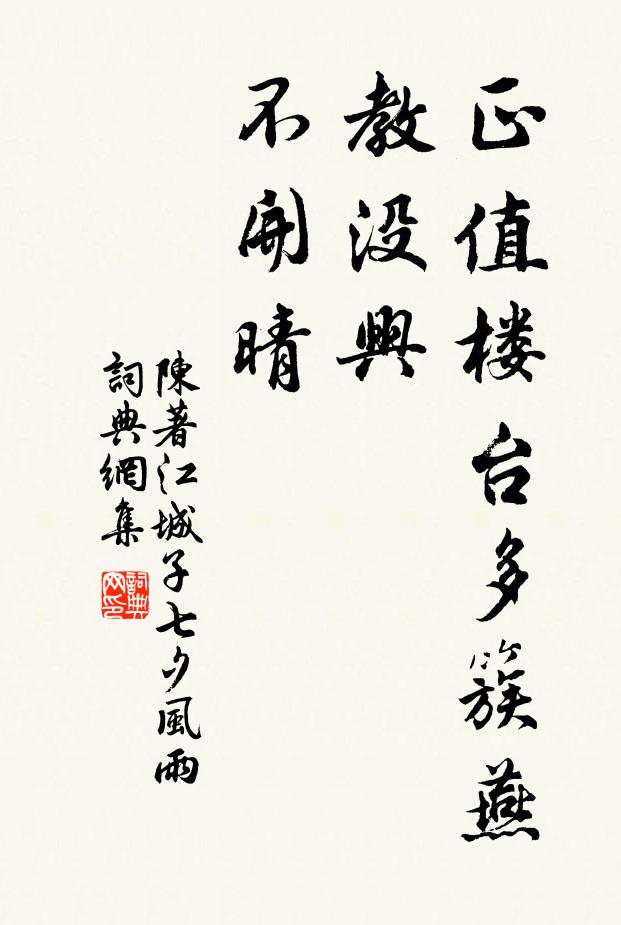 正值楼台多簇燕
教没興
不開晴
陳著江城子七夕風雨
詞典網集
詞典网印